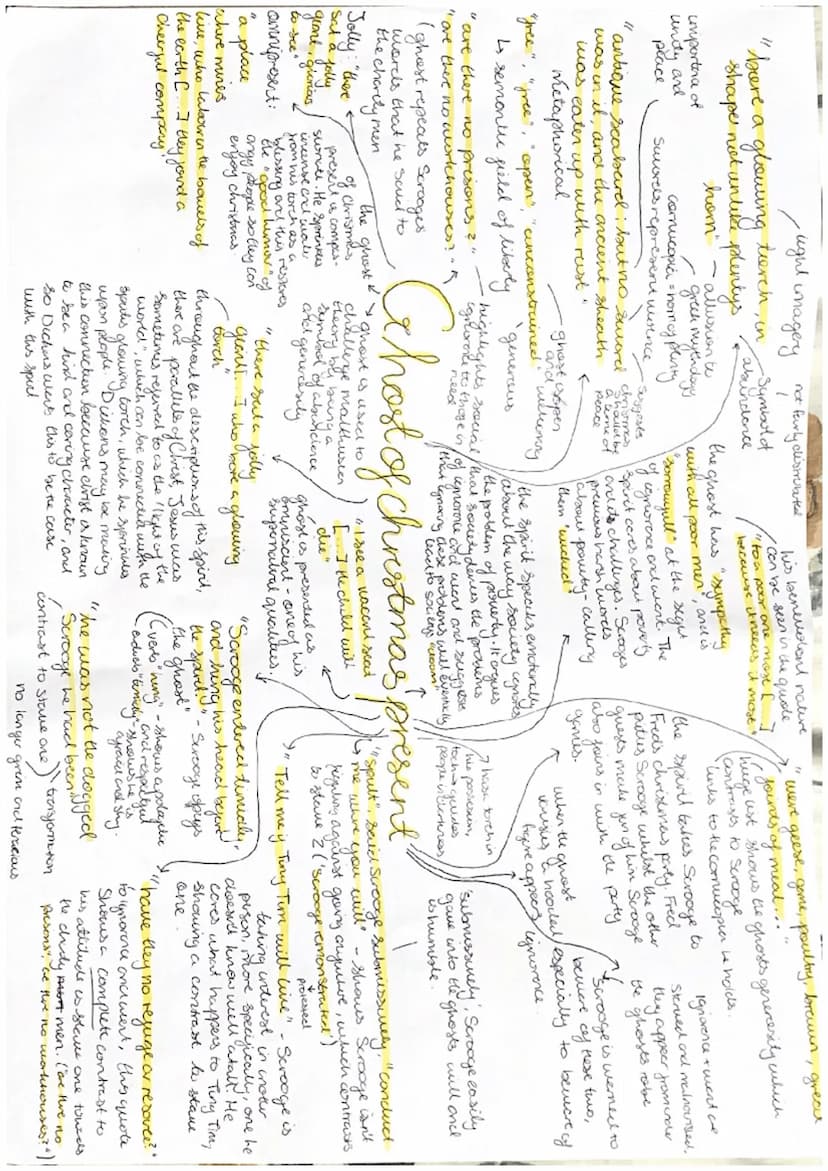 Ghost of christmas present
"bore a glowing torch, in
shape not unlike plenty's
horn"
light imagery
allusion to
greek mythology
cornucopia = horn of plenty
Symbol of
abundance
not fairly distributed
importance of
unity and
place
Swords represent violence
"antique scabbard but no sword
was in it and the ancient sheath
was eaten up with rust"
metaphorical
suggests
christmas
should be
a time of
peace
"free", "free", "open", "unconstrained"
↳ semantic field of liberty
generous
ghost is open
and welcoming
"are there no prisons?"
"are there no workhouses?"
(ghost repeats Scrooges
words that he said to
the charity men
highlights social
ignorance to those in
need
Jolly: "there
sat a jolly
giant, glorious
to see"
omnipresent:
"a place
where miners
live, who labour in the bowels of
the earth [...] they found a
cheerful company"
the ghost
of christmas
present is compas-
sionate. He sprinkles
incense and water
from his torch as a
blessing and this restores
the "good humour" of
angry people so they can
enjoy christmas
ghost is used to
challenge malthusian
theory by being a
symbol of abundance
and generosity
"there sat a jolly
giant [...] who bore a glowing
torch"
throughout the description of this spirit,
there are parallels of Christ. Jesus was
sometimes referred to as the "light of the
world", which can be connected with the
spirits glowing torch, which he sprinkles
upon people. Dickens may be making
this connection because christ is known
to be a kind and caring character, and
so Dickens wants this to be the case
with this spirit
his benevolent nature
can be seen in the quote
"to a poor one most [...]
because it needs it most"
the ghost has "sympathy
with all poor men", and is
"sorrowful" at the sight
of ignorance and want. The
spirit cares about poverty
and its challenges. Scrooges
previous harsh words
about poverty - calling
them "wicked"
the spirit speaks emotionally
about the way society ignores
the problem of poverty. It argues
that society denies the problems
of ignorance and want and suggests
that ignoring these problems will eventually
lead to society's "doom"
"I see a vacant seat
[...] the child will
die"
ghost is presented as
omniscient - one of his
supernatural qualities
"Scrooge entered timidly,
and hung his head before
the spirit" Scrooge obeys
the ghost
(verb "hung" - shows apologetic
and respectful
adverb timidly - shows he is
afraid and shy.
"he was not the dogged
Scrooge he had been"
contrast to stave one
transformation
no longer grim and tenacious
"were geese, game, poultry, brawn, great
joints of meat..."
(huge list shows the ghosts generosity which
contrasts to Scrooge
links to the cornucopia he holds.
the spirit takes Scrooge to
Freds christmas party. Fred
pities Scrooge whilst the other
guests make fun of him. Scrooge
also joins in with the party
games.
Ignorance + want are
starved and malnourished.
they appear from under
the ghosts robe
Scrooge is warned to
beware of these two,
especially to beware of
ignorance.
when the ghost
vanishes a hooded
figure appears
has a torch in
his possession,
torches guides
people in darkness
'submissively', Scrooge easily
gave into the ghosts will and
is humble.
"spirit", said Scrooge submissively, "conduct
me where you will" - shows Scrooge isn't
fighting against going anywhere, which contrasts
to stave 2 ('scrooge remonstrated')
protested
"Tell me if Tiny Tim will live" - Scrooge is
taking interest in another
person, more specifically, one he
doesn't know well at all. He
cares what happens to Tiny Tim,
showing a contrast to stave
one.
"have they no refuge or resource?"
to ignorance and want, this quote
shows a complete contrast to
his attitude in stave one towards
the charity men. ("are there no
prisons", "are there no workhouses?")